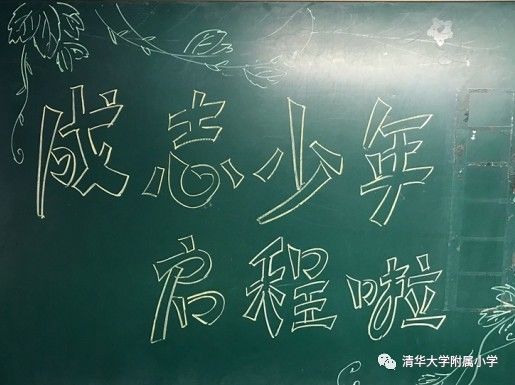 成志少年
启程啦
清华大学附属小学